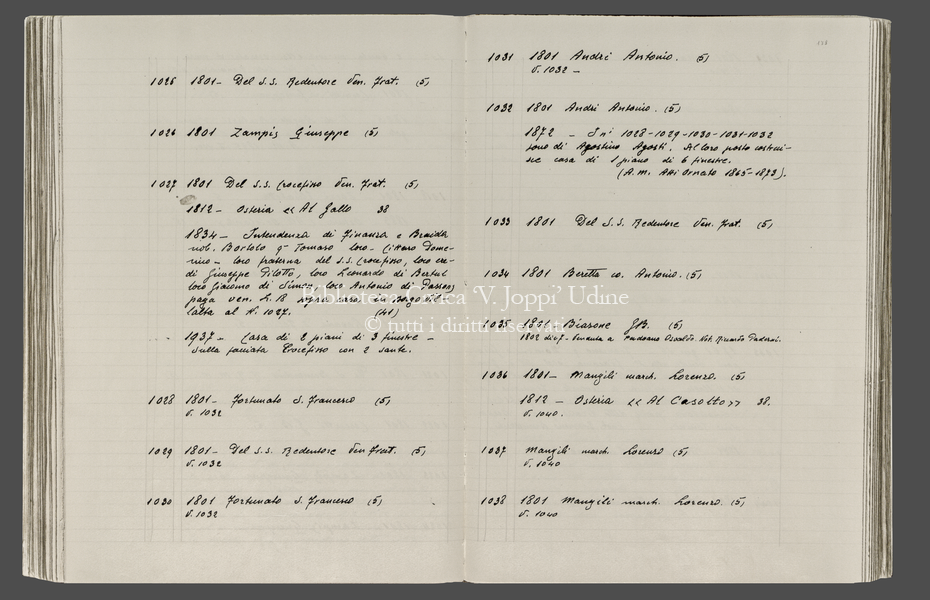 1025 1801 - Del S.S. Redentore Ven. Frat. (5)
1026 1801 Zampis Giuseppe (5)
1027 1801 Del S.S. Crocefisso Ven. Frat. (5)
1812 - Osteria << Al Gallo 38
1834 - Intendenza di Finanza e Braida
nob. Bortolo q- Tomaso loro - Cittaro Dome-
nico - loro fraterna del S.S. Crocefisso, loro ere-
di Giuseppe Pilotto, loro Leonardo di Bertul
loro Giacomo di Simon, loro Antonio di Passon
paga ven. L. 18 sopra casa in Borgo Vil-
lalta al N. 1027. (41)
1937 - Casa di 2 piani di 3 finestre -
Sulla facciata Crocefisso con 2 sante.
1028 1801 - Fortunato S. Francesco (5)
V. 1032
1029 1801 - Del S.S. Redentore Ven Frat. (5)
V. 1032
1030 1801 Fortunato S. Francesco (5)
V. 1032
1031 1801 Andri Antonio. (5)
V. 1032 -
1032 1801 Andri Antonio. (5)
1872 - I ni 1028-1029-1030-1031-1032
sono di Agostino Agosti. Al loro posto costrui-
sce casa di 1 piano di 6 finestre.
(A.M. Atti Ornato 1865-1872).
1033 1801 Del S.S. Redentore Ven. Frat. (5)
1034 1801 Beretta co. Antonio. (5)
1035 1801 Biasone GB. (5)
1802 Venduta a Osvaldo. Not. Ricardo Paderni.
1036 1801 - Mangili march. Lorenzo. (5)
1812 - Osteria << Al Casotto >> 38.
V. 1040.
1037 Mangili march. Lorenzo (5)
V. 1040
1038 1801 Mangili march. Lorenzo. (5)
V. 1040
Biblioteca Civica 'V. Joppi' Udine
© tutti i diritti riservati